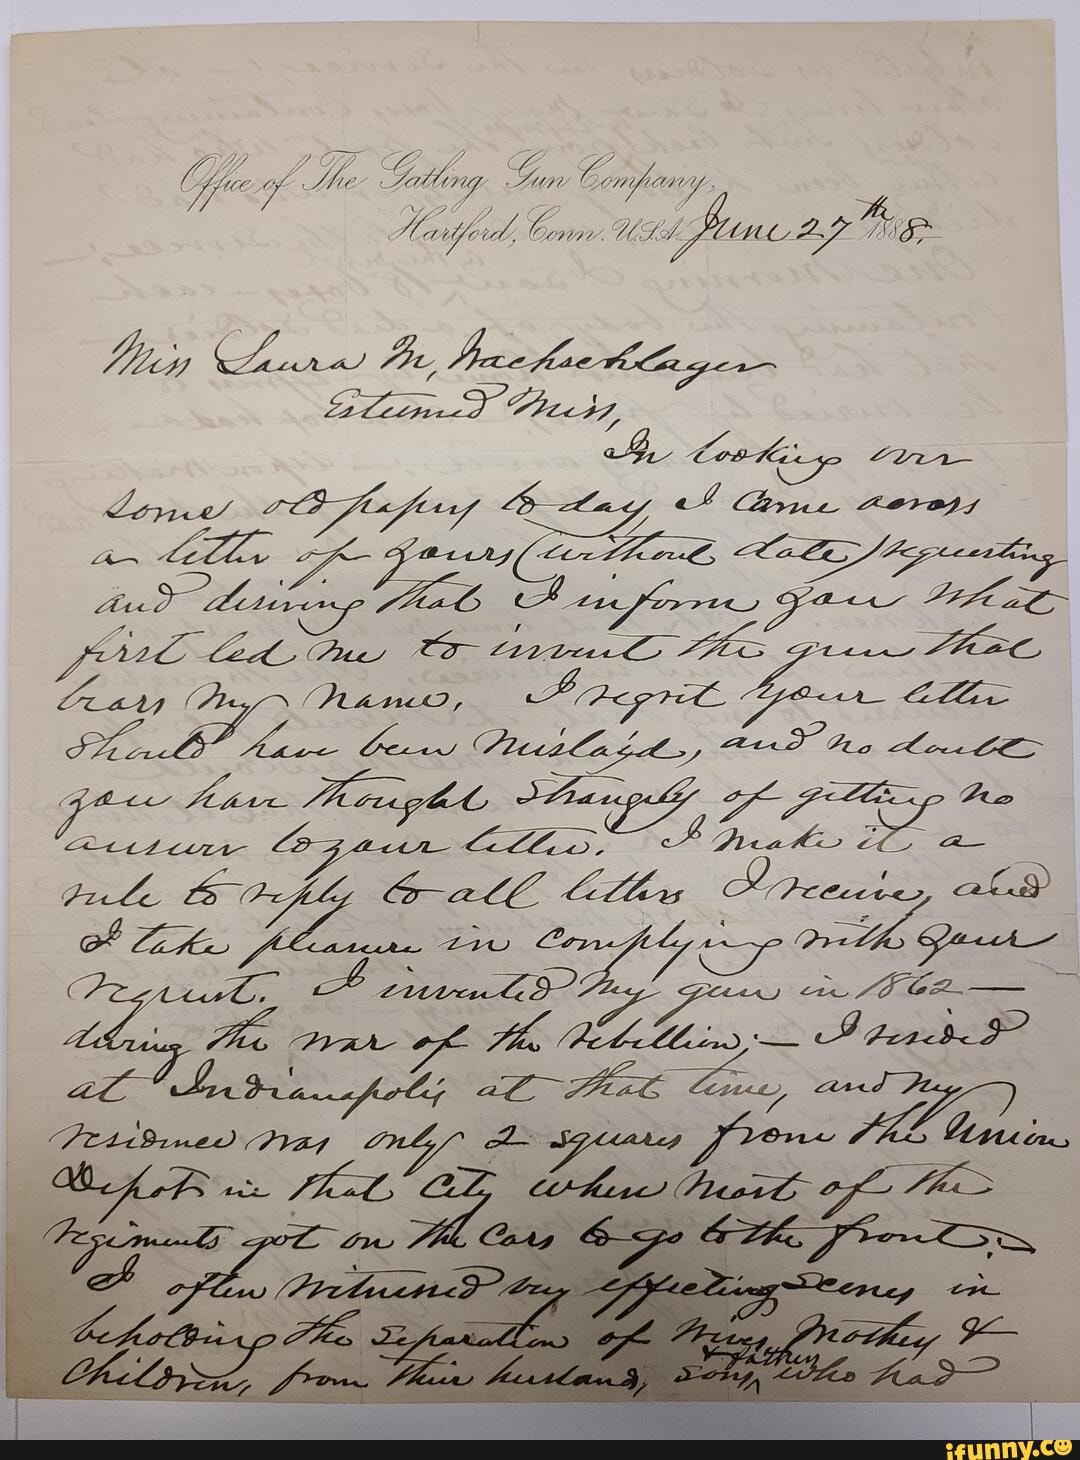 Office of The Gatling Gun Company,
Hartford, Conn. U.S.A. June 27th 1888.
Miss Laura M, Wachschlager
Esteemed Miss,
In looking over
some old papers to day I came across
a letter of yours (without date) requesting
and desiring that I inform you what
first led me to invent the gun that
bears my name. I regret your letter
should have been mislayd, and no doubt
you have thought strangely of getting no
answer to your letter. I make it a
rule to reply to all letters I receive, and
I take pleasure in complying with your
request. I invented my gun in 1862 —
during the war of the rebellion; — I resided
at Indianapolis at that time, and my
residence was only 2 squares from the Union
Depot in that City where most of the
regiments got on the Cars to go to the front: —
I often witnessed very effecting scenes in
beholding the separation of Wives, Mothers &
Children, from their husbands, sons, & fathers who had
ifunny.co